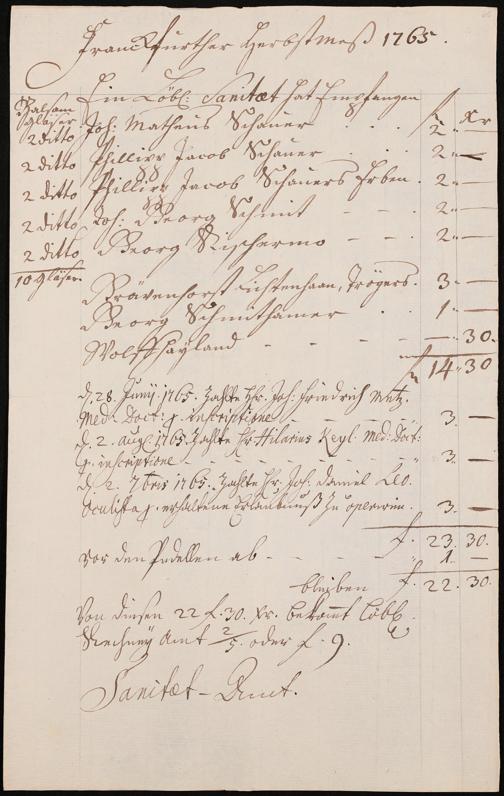 Franckfurther Herbstmeß 1765.
Ein Löbl: Sanitæt hat Empfangen
Balsam
Gläser f. Xr
2 ditto Joh: Matheus Schauer . . . 2 „ —
2 ditto Phillipp Jacob Schauer . . 2 „ —
2 ditto Phillipp Jacob Schauers Erben . 2 „ —
2 ditto Joh: Georg Schmit – – . 2 „ —
2 ditto Georg – – – 2 „ —
10 Gläser.
Grävenhorst, Lichtenhaan, Trögers . 3 „ —
Georg . . 1 „ —
Wolff Hayland – – – – — 30.
f 14 „ 30
d. 28. Junij 1765. Zahlte Hr. Joh: Friedrich Metz.
Med: Doct: p. inscriptione – – – 3. —
d. 2. Aug: 1765. Zahlte Hr Hilarius Keyl. Med: Doct:
p. inscriptione – – – – – – 3. —
d. 2. 7bris 1765. Zahlte Hr. Joh. Daniel Leo.
Oculista p. erhaltene Erlaubnuß zu operiren. 3. —
f. 23. 30.
vor den Pedellen ab – – – – 1. —
bleiben f. 22. 30.
Von diesen 22 f. 30. Xr. bekomt Löbl.
Rechney Amt 2/5. oder f. 9.
Sanitæt – Amt.